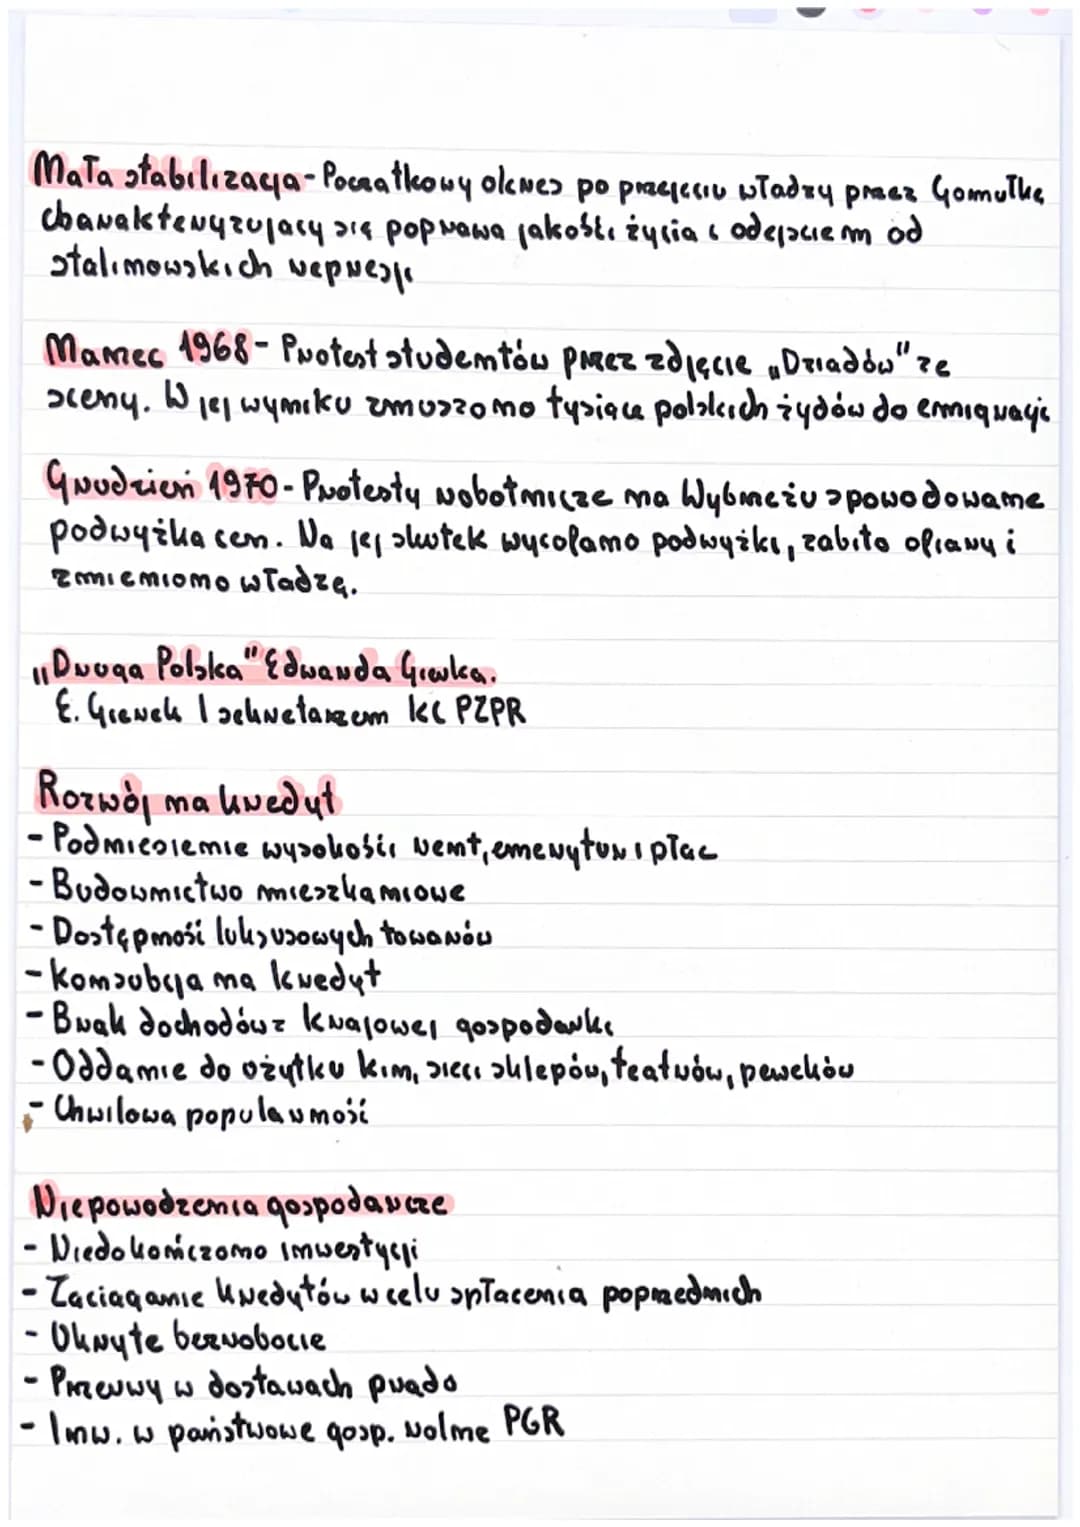 Mała stabilizacja - Początkowy okres po przejęciu władzy przez Gomułkę
charakteryzujący się poprawą jakości życia i odejściem od
stalinowskich represji
Marzec 1968 - Protest studentów przez zdjęcie „Dziadów" ze
sceny. W jej wyniku zmuszono tysiące polskich żydów do emigracji
Grudzień 1970 - Protesty robotnicze na Wybrzeżu spowodowane
podwyżką cen. Na jej skutek wycofano podwyżki, zabito ofiary i
zmieniono władzę.
„Druga Polska" Edwarda Gierka.
E. Gierek I sekretarzem KC PZPR
Rozwój na kredyt
- Podniesienie wysokości rent, emerytur i płac
- Budownictwo mieszkaniowe
- Dostępność luksusowych towarów
- Konsubcja na kredyt
- Brak dochodów z krajowej gospodarki
- Oddanie do użytku kin, sieci sklepów, teatrów, pewexów
- Chwilowa popularność
Niepowodzenia gospodarcze
- Niedokończono inwestycji
- Zaciąganie kredytów w celu spłacenia poprzednich
- Ukryte bezrobocie
- Przerwy w dostawach prądu
- Inw. w państwowe gosp. rolne PGR